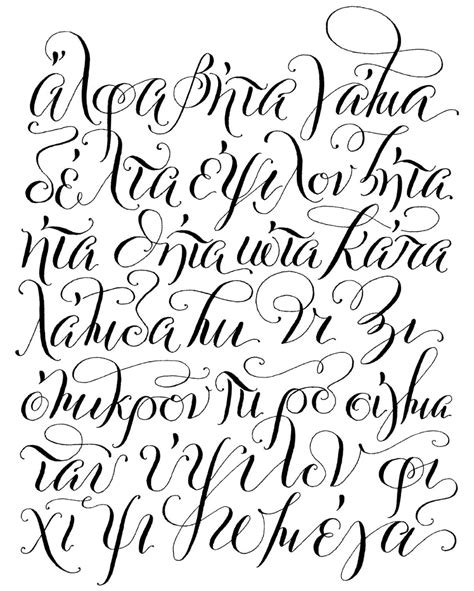 άλφα βήτα γάμμα
δέλτα έψιλον ζήτα
ήτα θήτα ιώτα κάππα
λάμβδα μι νι ξι
όμικρον πι ρο σίγμα
ταυ ύψιλον φι
χι ψι ωμέγα